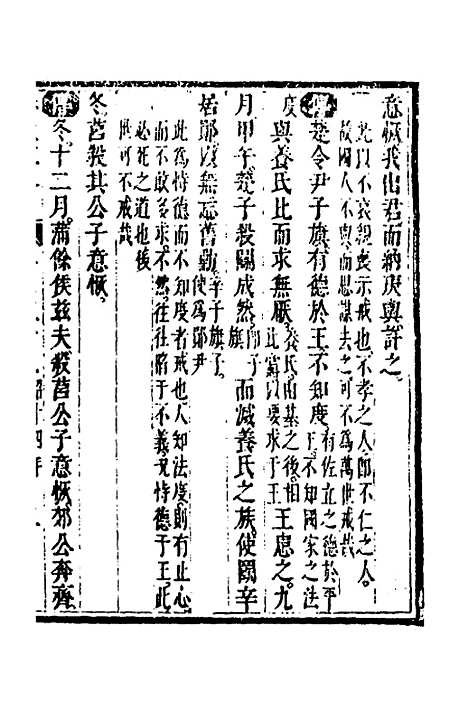 意恢我出君而納庚輿許之
此以不哀親喪示戒也不孝之人即不仁之人
故國人不與而思謀去之可不為萬世戒哉
傳楚令尹子旗有德於王不知度有佐立之德於平
王不知國家之法
度與養氏比而求無厭養氏由基之後相
比黨以要求于王王患之九
月甲午楚子殺鬬成然即子
旗而滅養氏之族使鬬辛
居鄖以無忘舊勳辛子旗子
使為鄖尹
此為恃德而不知度者戒也人知法度則有止心
而不敢多求不然在社將于不義况恃德于王此
必死之道也後
世可不戒哉
冬莒殺其公子意恢
傳冬十二月蒲餘侯茲夫殺莒公子意恢郊公奔齊